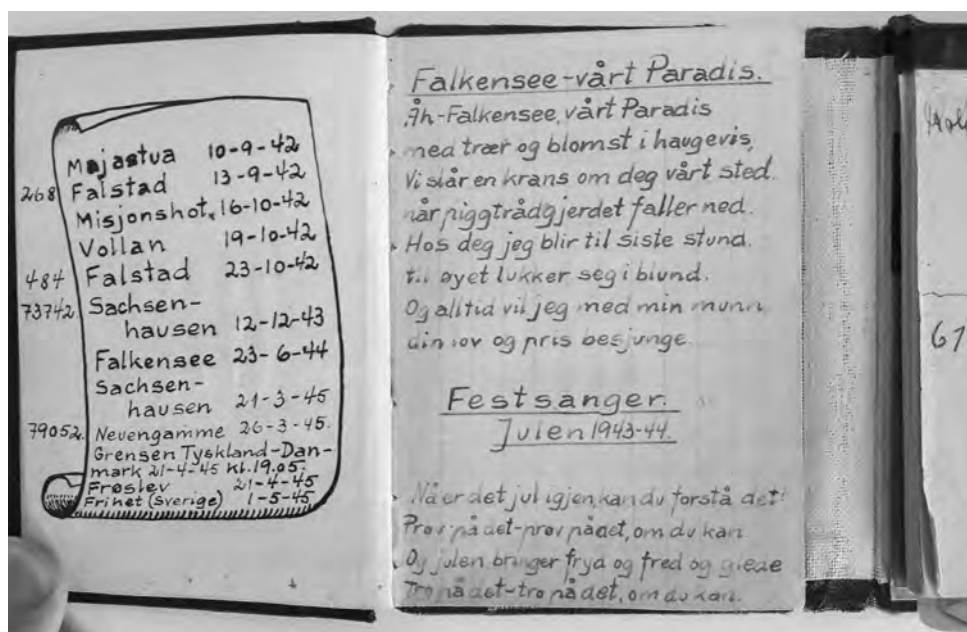 Majastua 10-9-42
268 Falstad 13-9-42
Misjonshot. 16-10-42
Vollan 19-10-42
484 Falstad 23-10-42
73742 Sachsen-
hausen 12-12-43
Falkensee 23-6-44
Sachsen-
hausen 21-3-45
79052. Neuengamme 26-3-45.
Grensen Tyskland-Dan-
mark 21-4-45 Kl. 19.05.
Frøslev 21-4-45
Frihet (Sverige) 1-5-45
Falkensee-vårt Paradis.
Åh-Falkensee, vårt Paradis
med trær og blomst i haugevis,
Vi slår en krans om deg vårt sted.
når piggtrådgjerdet faller ned.
Hos deg jeg blir til siste stund.
til øyet lukker seg i blund.
Og alltid vil jeg med min munn
din lov og pris besjunge.
Festsanger.
Julen 1943-44.
Nå er det jul igjen, kan du forstå det!
Prøv på det-prøv på det, om du kan.
Og julen bringer fryd og fred og glede
Tro på det-tro på det, om du kan.
67